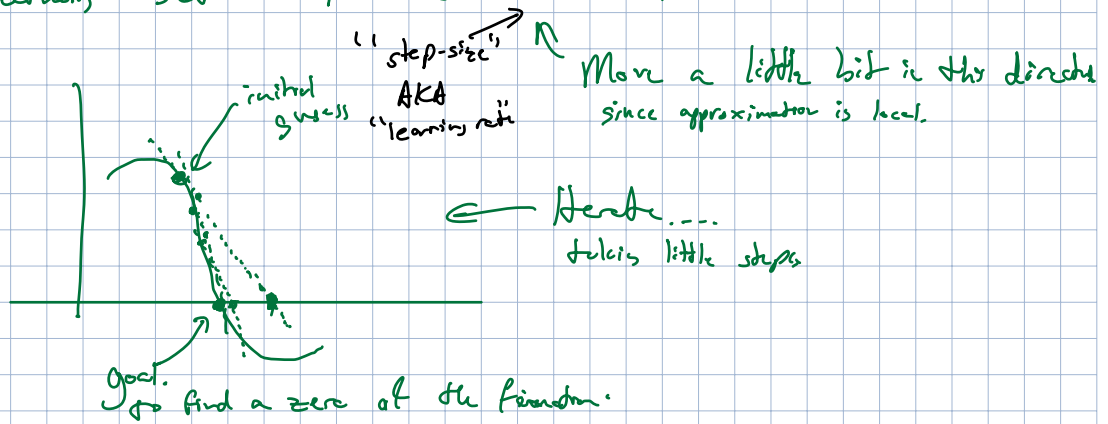 "step-size"
AKA
"learning rate"
Move a little bit in this direct
since approximation is local.
initial
guess
Iterate....
taking little steps
goal.
to find a zero of the function.